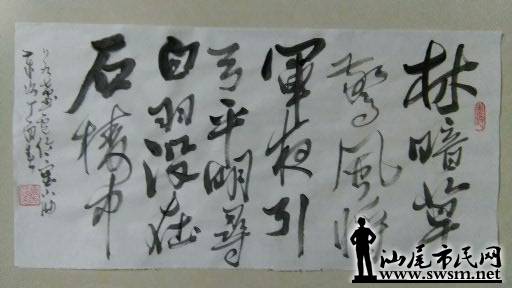 林暗草
驚風將
軍夜引
弓平明尋
白羽没在
石棱中
汕尾市民网
www.swsm.net